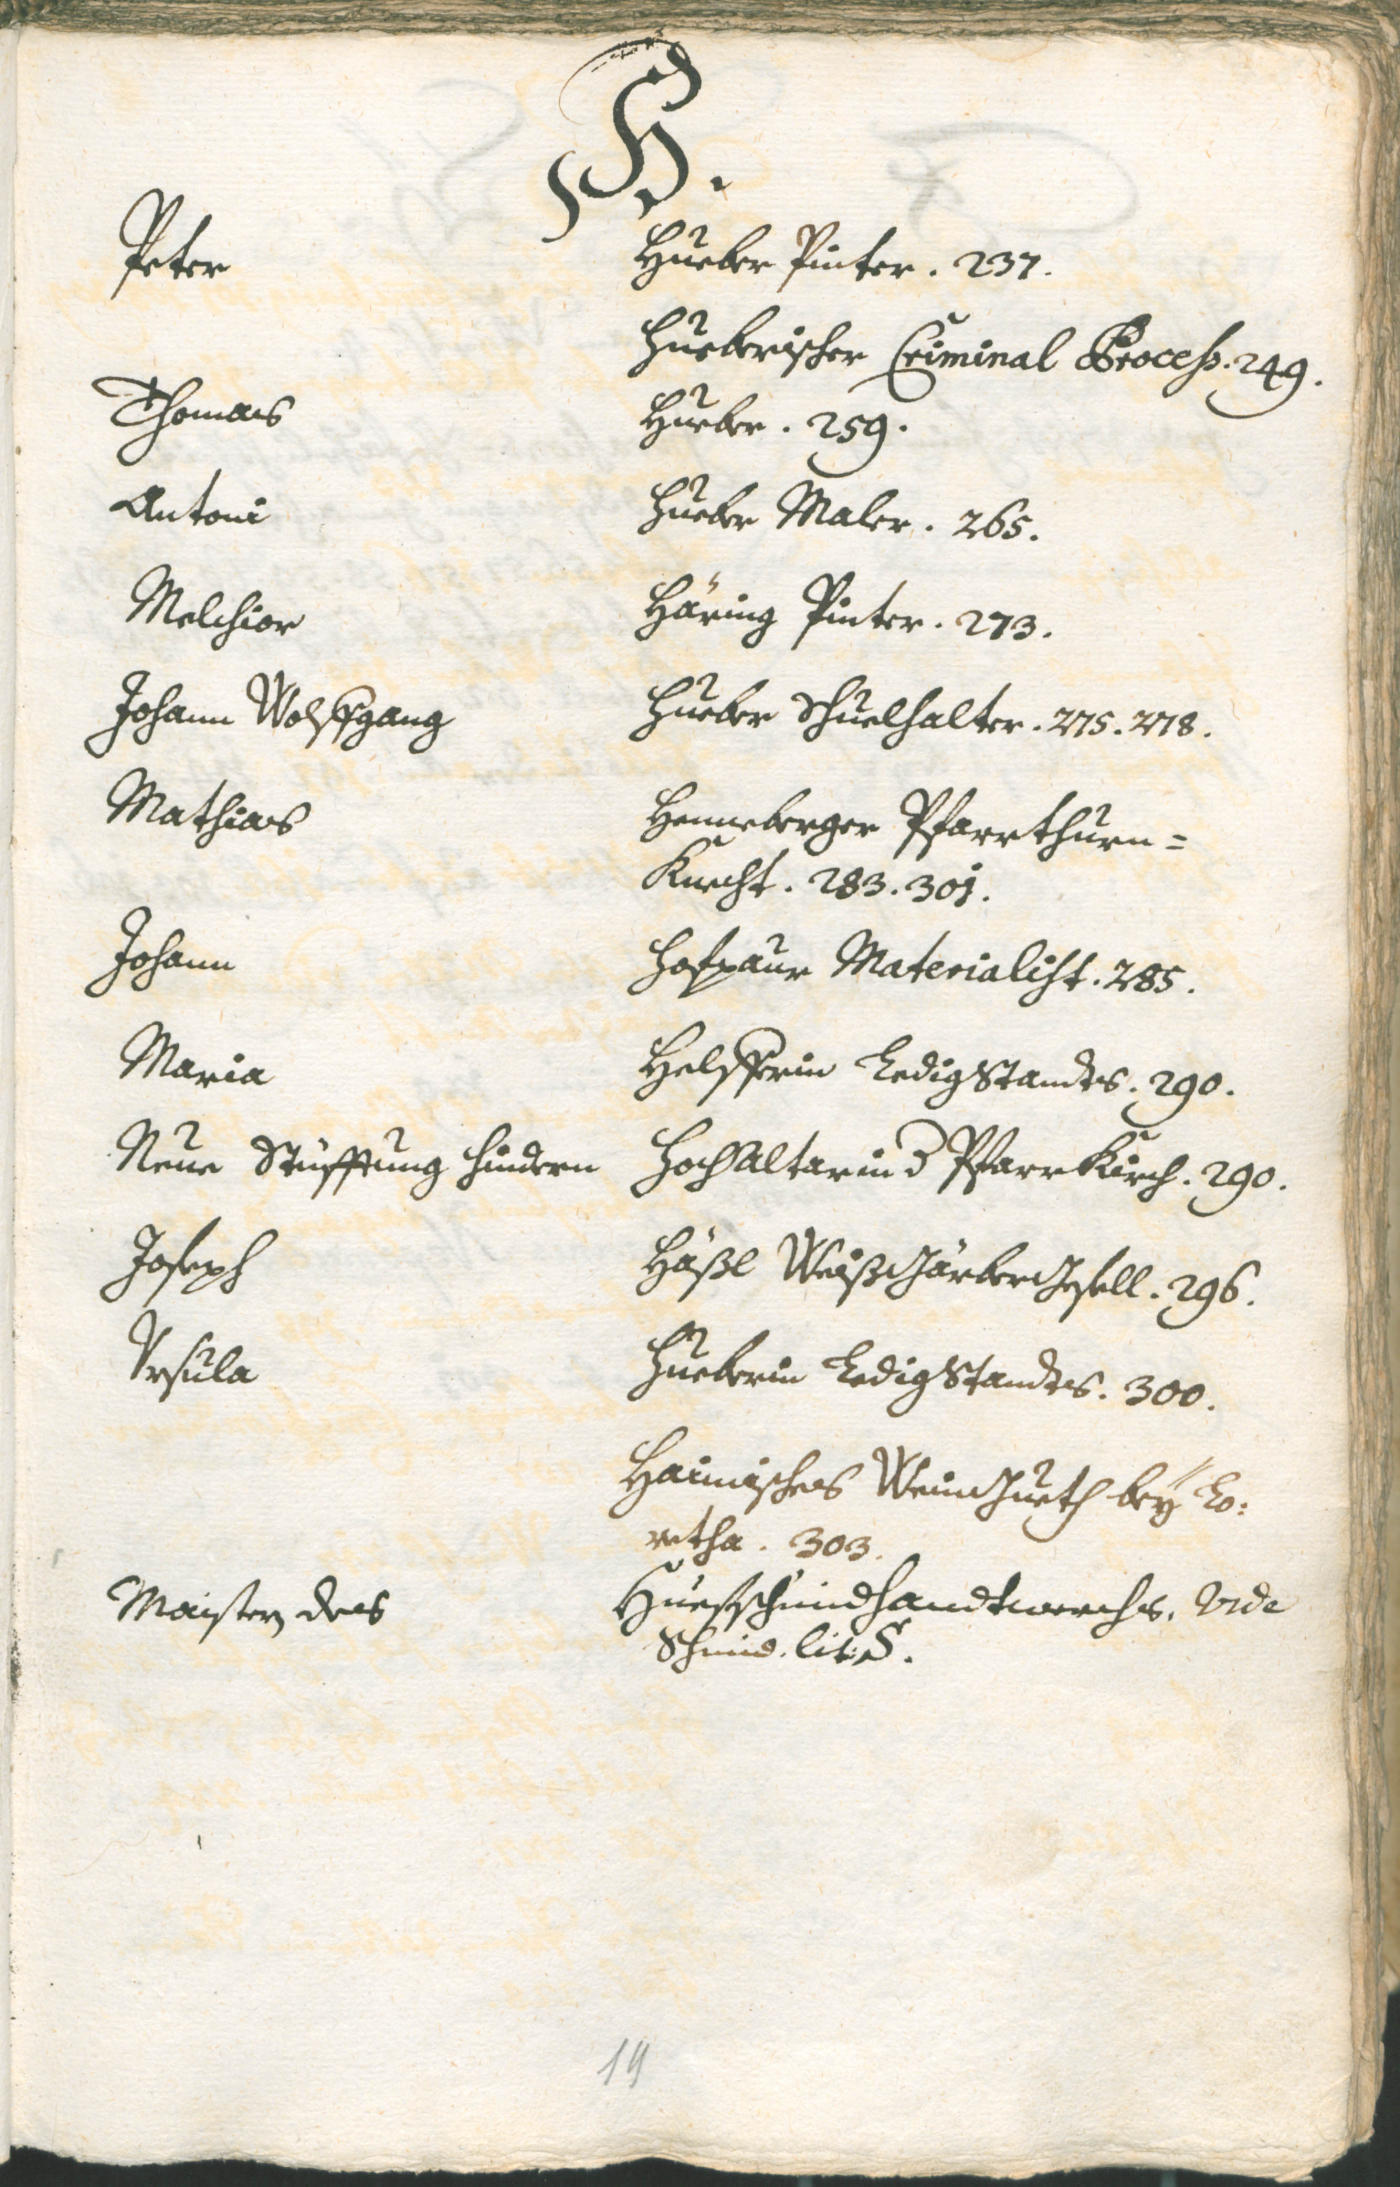 H.
Peter Hueber Pinter. 237.
Hueberischer Criminal Process. 249.
Thomas Hueber. 259.
Antoni Hueber Maler. 265.
Melchior Häring Pinter. 273.
Johann Wolffgang Hueber Schuelhalter. 275. 278.
Mathias Henneberger Pfarrthurn=
Knecht. 283. 301.
Johann Hofpaur Materialist. 285.
Maria Helfferin Ledig Standts. 290.
Neue Stüfftung hindern Hoch Altar in d Pfarr Kirch. 290.
Joseph Häßl Weißgärber Gesell. 296.
Ursula Hueberin Ledig Standts. 300.
Hainisches Weingueth bey Lo:
retha. 303.
Maister des Huefschmidhandtwerchs. vide
Schmid. lit: S.
19